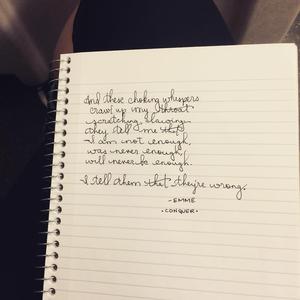 And these choking whispers
crawl up my throat
scratching, clawing.
they tell me that
I am not enough,
was never enough,
will never be enough.
I tell them that they're wrong.
- EMME
• CONQUER •